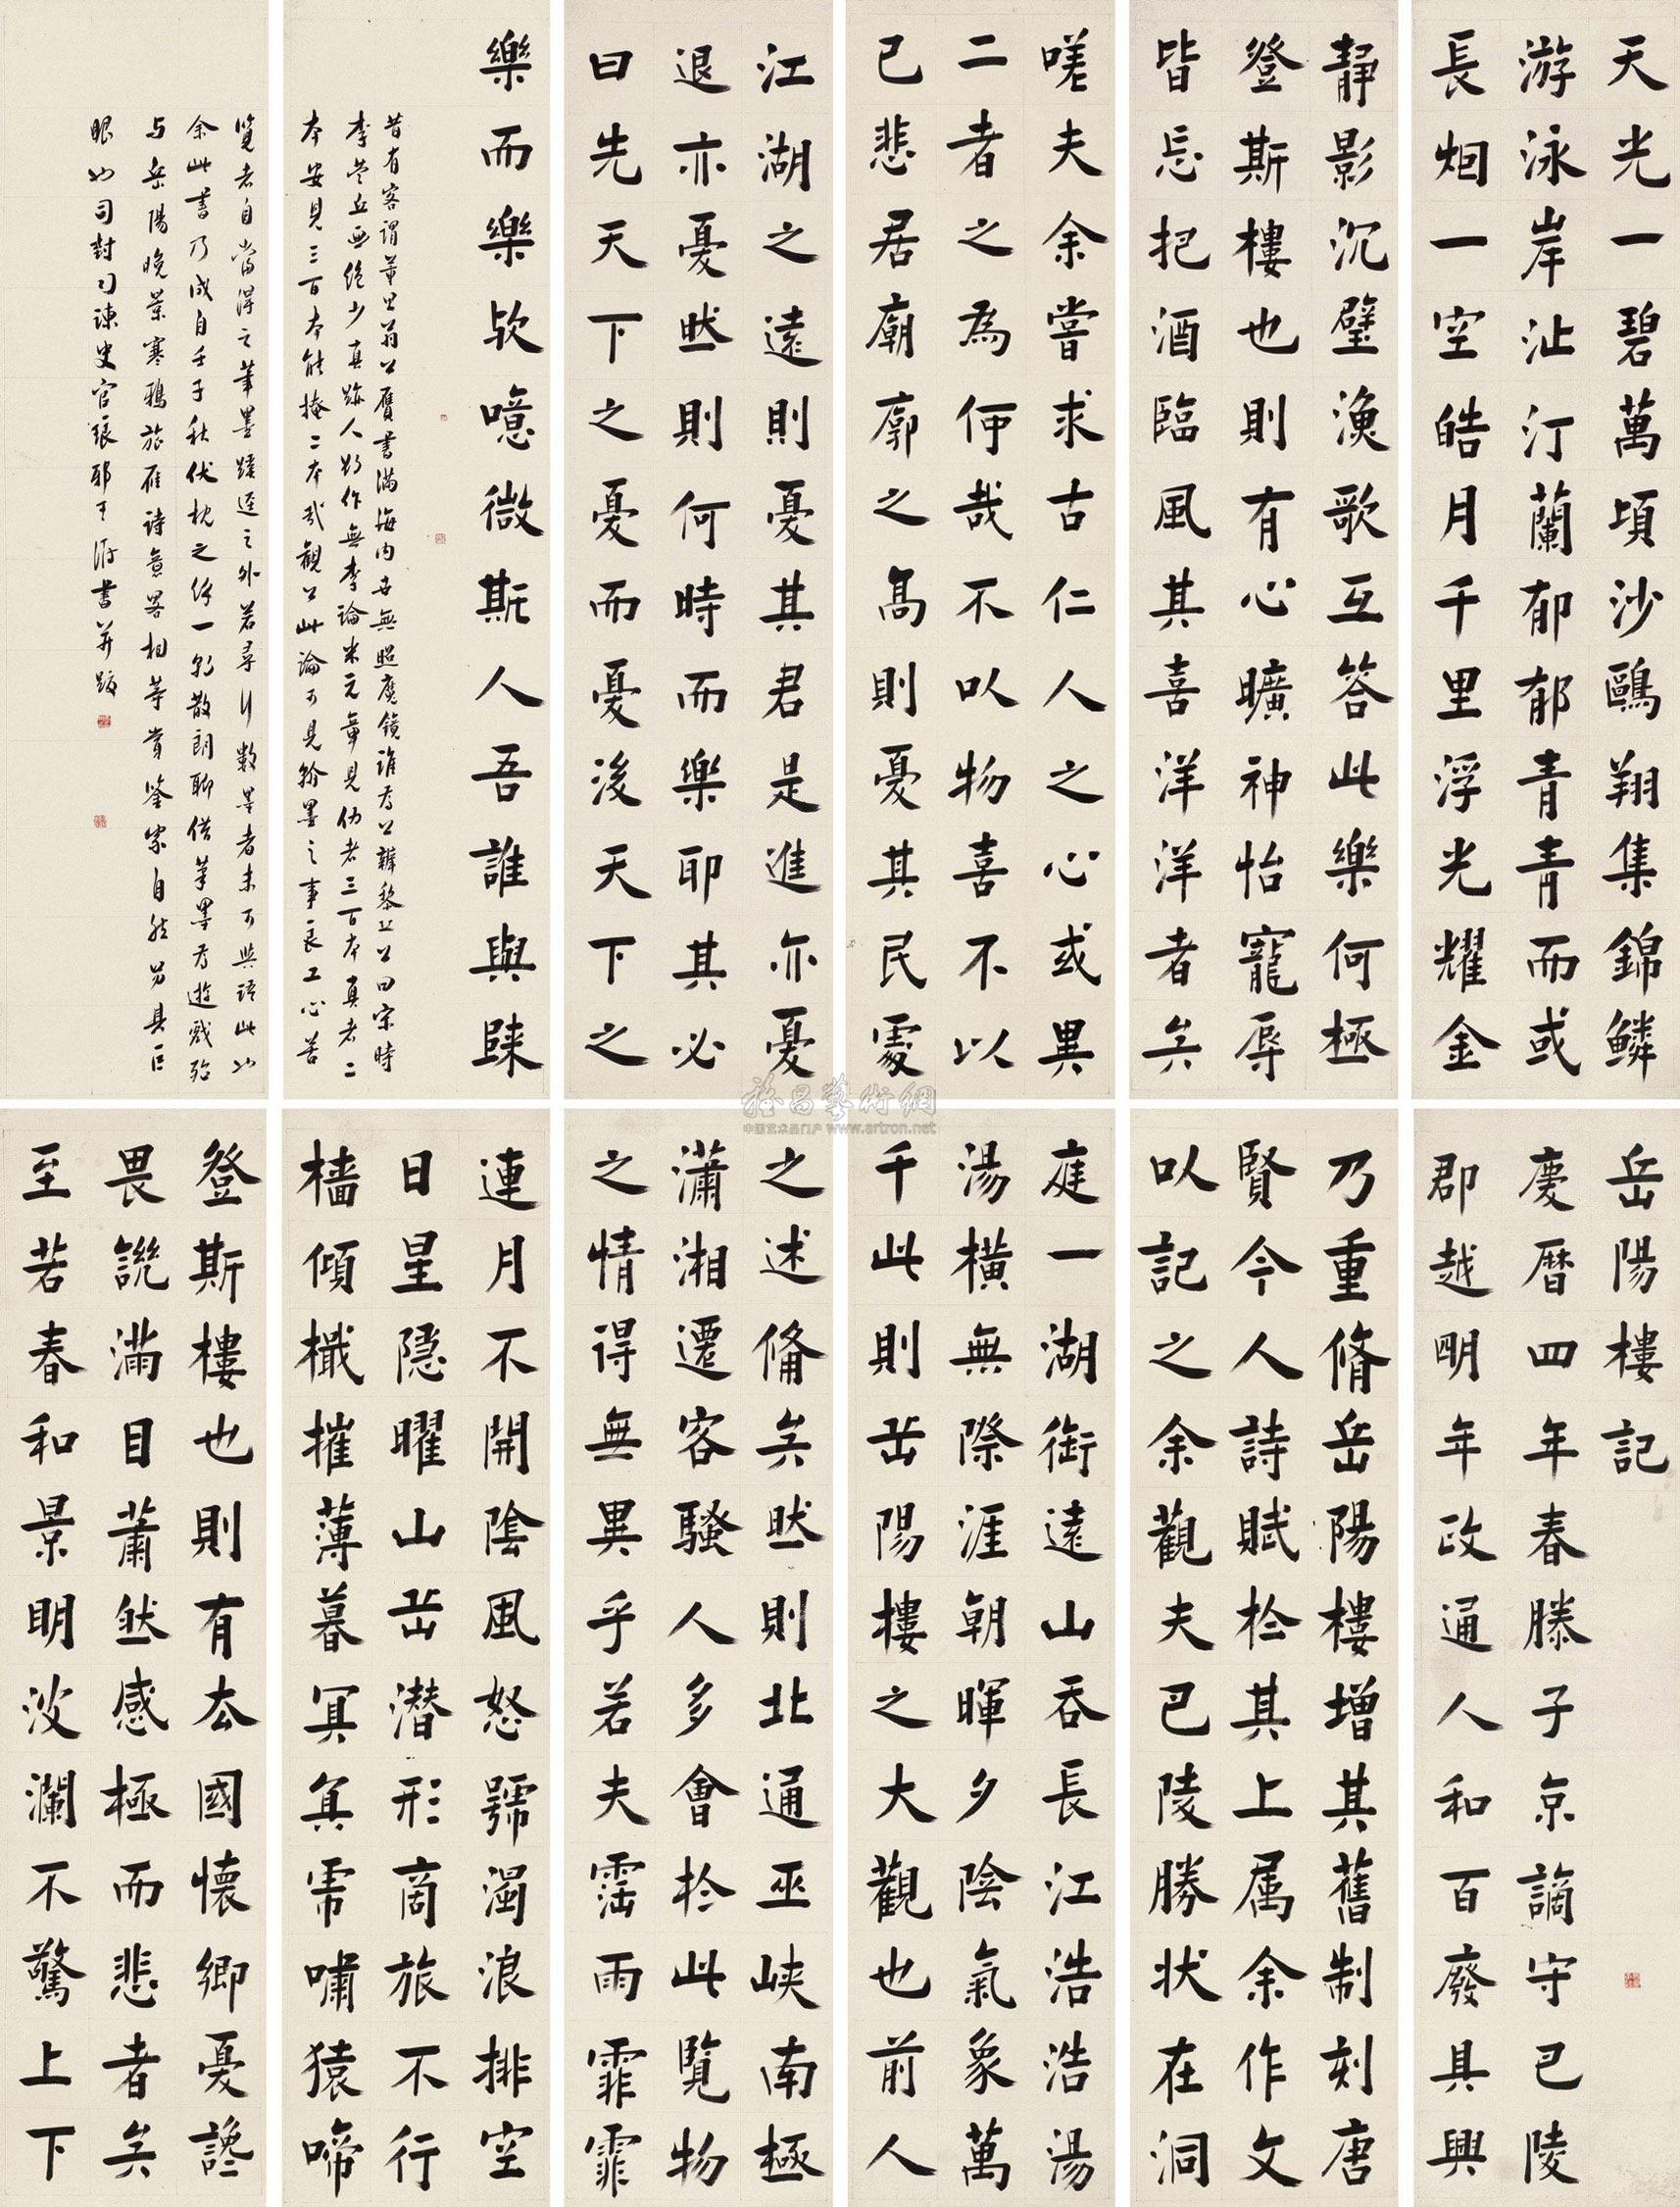 岳陽樓記
慶暦四年春滕子京謫守巴陵
郡越明年政通人和百廢具興
乃重脩岳陽樓增其舊制刻唐
賢今人詩賦於其上属余作文
以記之余觀夫巴陵勝状在洞
庭一湖銜遠山吞長江浩浩湯
湯橫無際涯朝暉夕陰氣象萬
千此則岳陽樓之大觀也前人
之述備矣然則北通巫峽南極
瀟湘遷客騷人多會於此覽物
之情得無異乎若夫霪雨霏霏
連月不開陰風怒號濁浪排空
日星隱曜山岳潛形商旅不行
檣傾檝摧薄暮冥冥虎嘯猿啼
登斯樓也則有去國懷鄉憂讒
畏譏滿目蕭然感極而悲者矣
至若春和景明波瀾不驚上下
天光一碧萬頃沙鷗翔集錦鱗
游泳岸沚汀蘭郁郁青青而或
長烟一空皓月千里浮光耀金
靜影沉璧漁歌互答此樂何極
登斯樓也則有心曠神怡寵辱
皆忘把酒臨風其喜洋洋者矣
嗟夫余嘗求古仁人之心或異
二者之為何哉不以物喜不以
己悲居廟廊之高則憂其民處
江湖之遠則憂其君是進亦憂
退亦憂然則何時而樂耶其必
曰先天下之憂而憂後天下之
樂而樂歟噫微斯人吾誰與歸
昔有客謂董思翁公贗書滿海内世無照魔鏡誰為公辨黎丘公曰宋時
李營丘画絶少真跡人欲作無李論米元章見偽者三百本真者二
本安見三百本能掩二本哉觀公此論可見翰墨之事良工心苦
覽者自當得之筆墨蹊逕之外若尋行數墨者未可與語此也
余此書乃成自壬子秋伏枕之餘一散朗聊借筆墨為遊戲殆
与岳陽晚景寒鴉旅雁詩意畧相等賞鑒家自能另具巨
眼也司封司諌史官琅邪王澍書并跋
雅昌藝術網
中国艺术品门户 www.artron.net